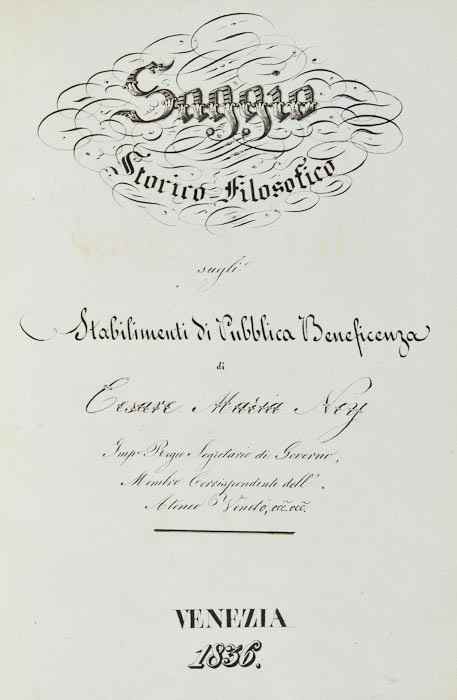 Saggio
Storico-Filosofico
sugli
Stabilimenti di Pubblica Beneficenza
di
Cesare Maria Noy
Imp. Regio Segretario di Governo,
Membro Corrispondente dell'
Ateneo Veneto, ecc. ecc.
VENEZIA
1836.